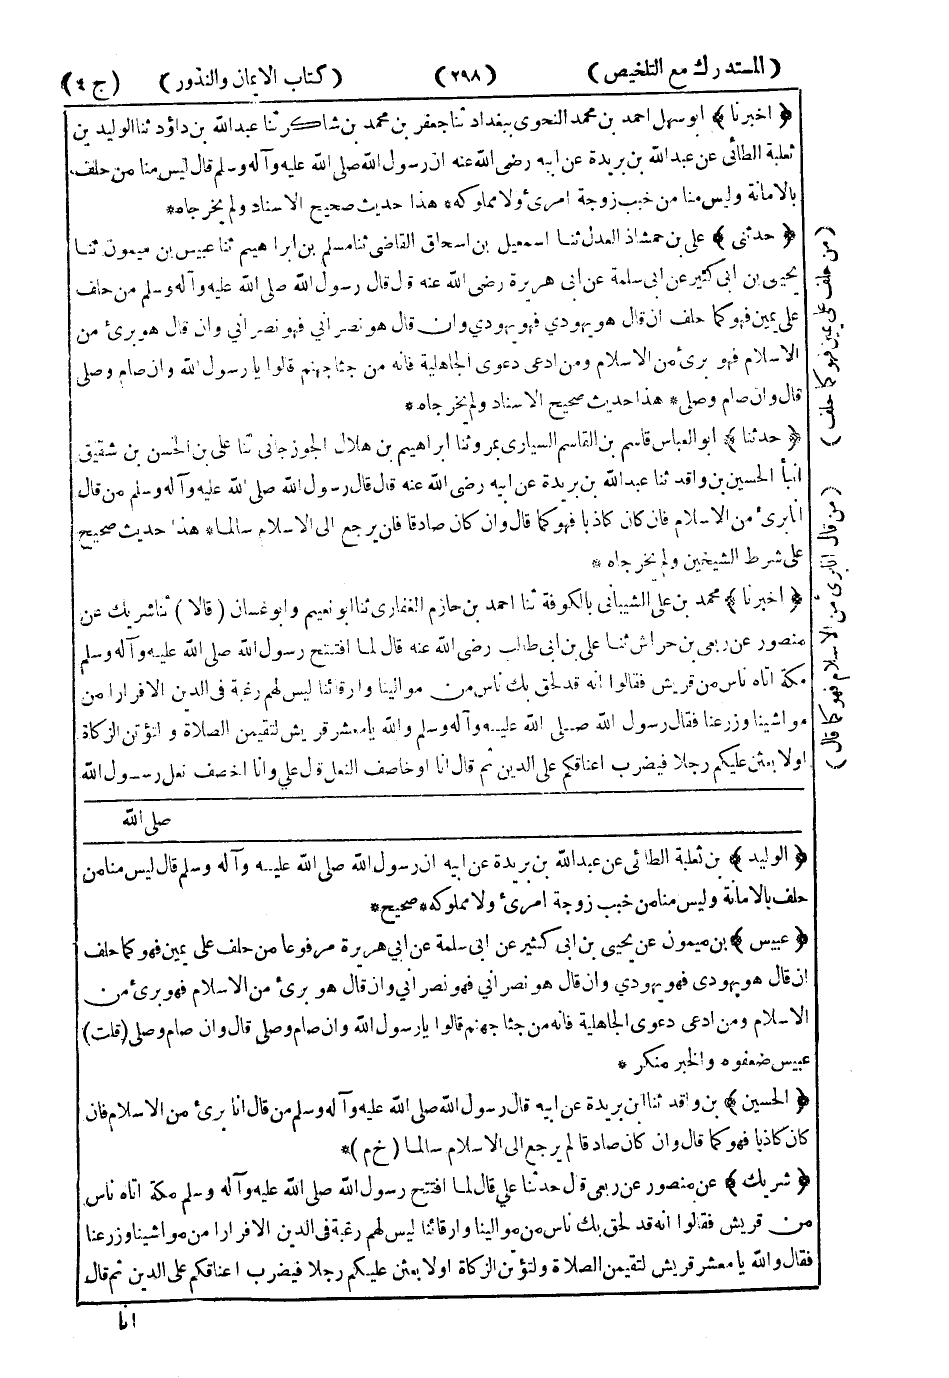 (المستدرك مع التلخيص) (٢٩٨) (كتاب الايمان والنذور) (ج ٤)
﴿ اخبرنا ﴾ ابو سهل احمد بن محمد النحوى ببغداد ثنا جعفر بن محمد بن شاكر ثنا عبدالله بن داؤد ثنا الوليد بن
ثعلبة الطائى عن عبدالله بن بريدة عن ابيه رضى الله عنه ان رسول الله صلى الله عليه وآله وسلم قال ليس منا من حلف
بالامانة وليس منا من خبب زوجة امرئ ولا مملوكه* هذا حديث صحيح الاسناد ولم يخرجاه*
﴿ حدثنى ﴾ على بن حمشاذ العدل ثنا اسمعيل بن اسحاق القاضى ثنا مسلم بن ابراهيم ثنا عبيس بن ميمون ثنا
يحيى بن ابى كثير عن ابى سلمة عن ابى هريرة رضى الله عنه قال قال رسول الله صلى الله عليه وآله وسلم من حلف
على يمين فهو كما حلف ان قال هو يهودي فهو يهودي وان قال هو نصراني فهو نصراني وان قال هو برئ من
الاسلام فهو برئ من الاسلام ومن ادعى دعوى الجاهلية فانه من جثا جهنم قالوا يا رسول الله وان صام وصلى
قال وان صام وصلى* هذا حديث صحيح الاسناد ولم يخرجاه *
﴿ حدثنا ﴾ ابو العباس قاسم بن القاسم السيارى بمرو ثنا ابراهيم بن هلال الجوزجانى ثنا على بن الحسن بن شقيق
انبأ الحسين بن واقد ثنا عبدالله بن بريدة عن ابيه رضى الله عنه قال قال رسول الله صلى الله عليه وآله وسلم من قال
انا برئ من الاسلام فان كان كاذبا فهو كما قال وان كان صادقا فلن يرجع الى الاسلام سالما* هذا حديث صحيح
على شرط الشيخين ولم يخرجاه *
﴿ اخبرنا ﴾ محمد بن على الشيبانى بالكوفة ثنا احمد بن حازم الغفارى ثنا ابو نعيم وابو غسان (قالا) ثنا شريك عن
منصور عن ربعى بن حراش ثنا على بن ابى طالب رضى الله عنه قال لما افتتح رسول الله صلى الله عليه وآله وسلم
مكة اتاه ناس من قريش فقالوا انه قد لحق بك ناس من موالينا وارقائنا ليس لهم رغبة فى الدين الا فرارا من
مواشينا وزرعنا فقال رسول الله صلى الله عليه وآله وسلم والله يا معشر قريش لتقيمن الصلاة و لتؤتن الزكاة
اولا بعثن عليكم رجلا فيضرب اعناقكم على الدين ثم قال انا او خاصف النعل قال علي وانا اخصف نعل رسول الله
صلى الله
(من حلف على يمين فهو كما حلف)
(من قال انا برئ من الاسلام فهو كما قال)
﴿ الوليد ﴾ بن ثعلبة الطائى عن عبدالله بن بريدة عن ابيه ان رسول الله صلى الله عليه وآله وسلم قال ليس منا من
حلف بالامانة وليس منا من خبب زوجة امرئ ولا مملوكه* صحيح*
﴿ عبيس ﴾ بن ميمون عن يحيى بن ابى كثير عن ابى سلمة عن ابي هريرة مرفوعا من حلف على يمين فهو كما حلف
ان قال هو يهودى فهو يهودي وان قال هو نصراني فهو نصراني وان قال هو برئ من الاسلام فهو برئ من
الاسلام ومن ادعى دعوى الجاهلية فانه من جثا جهنم قالوا يا رسول الله وان صام وصلى قال وان صام وصلى (قلت)
عبيس ضعفوه والخبر منكر *
﴿ الحسين ﴾ بن واقد ثنا ابن بريدة عن ابيه قال رسول الله صلى الله عليه وآله وسلم من قال انا برئ من الاسلام فان
كان كاذبا فهو كما قال وان كان صادقا لم يرجع الى الاسلام سالما (خ م)*
﴿ شريك ﴾ عن منصور عن ربعى قال حدثنا علي قال لما افتتح رسول الله صلى الله عليه وآله وسلم مكة اتاه ناس
من قريش فقالوا انه قد لحق بك ناس من موالينا وارقائنا ليس لهم رغبة فى الدين الا فرارا من مواشينا وزرعنا
فقال والله يا معشر قريش لتقيمن الصلاة ولتؤتن الزكاة اولا بعثن عليكم رجلا فيضرب اعناقكم على الدين ثم قال
انا